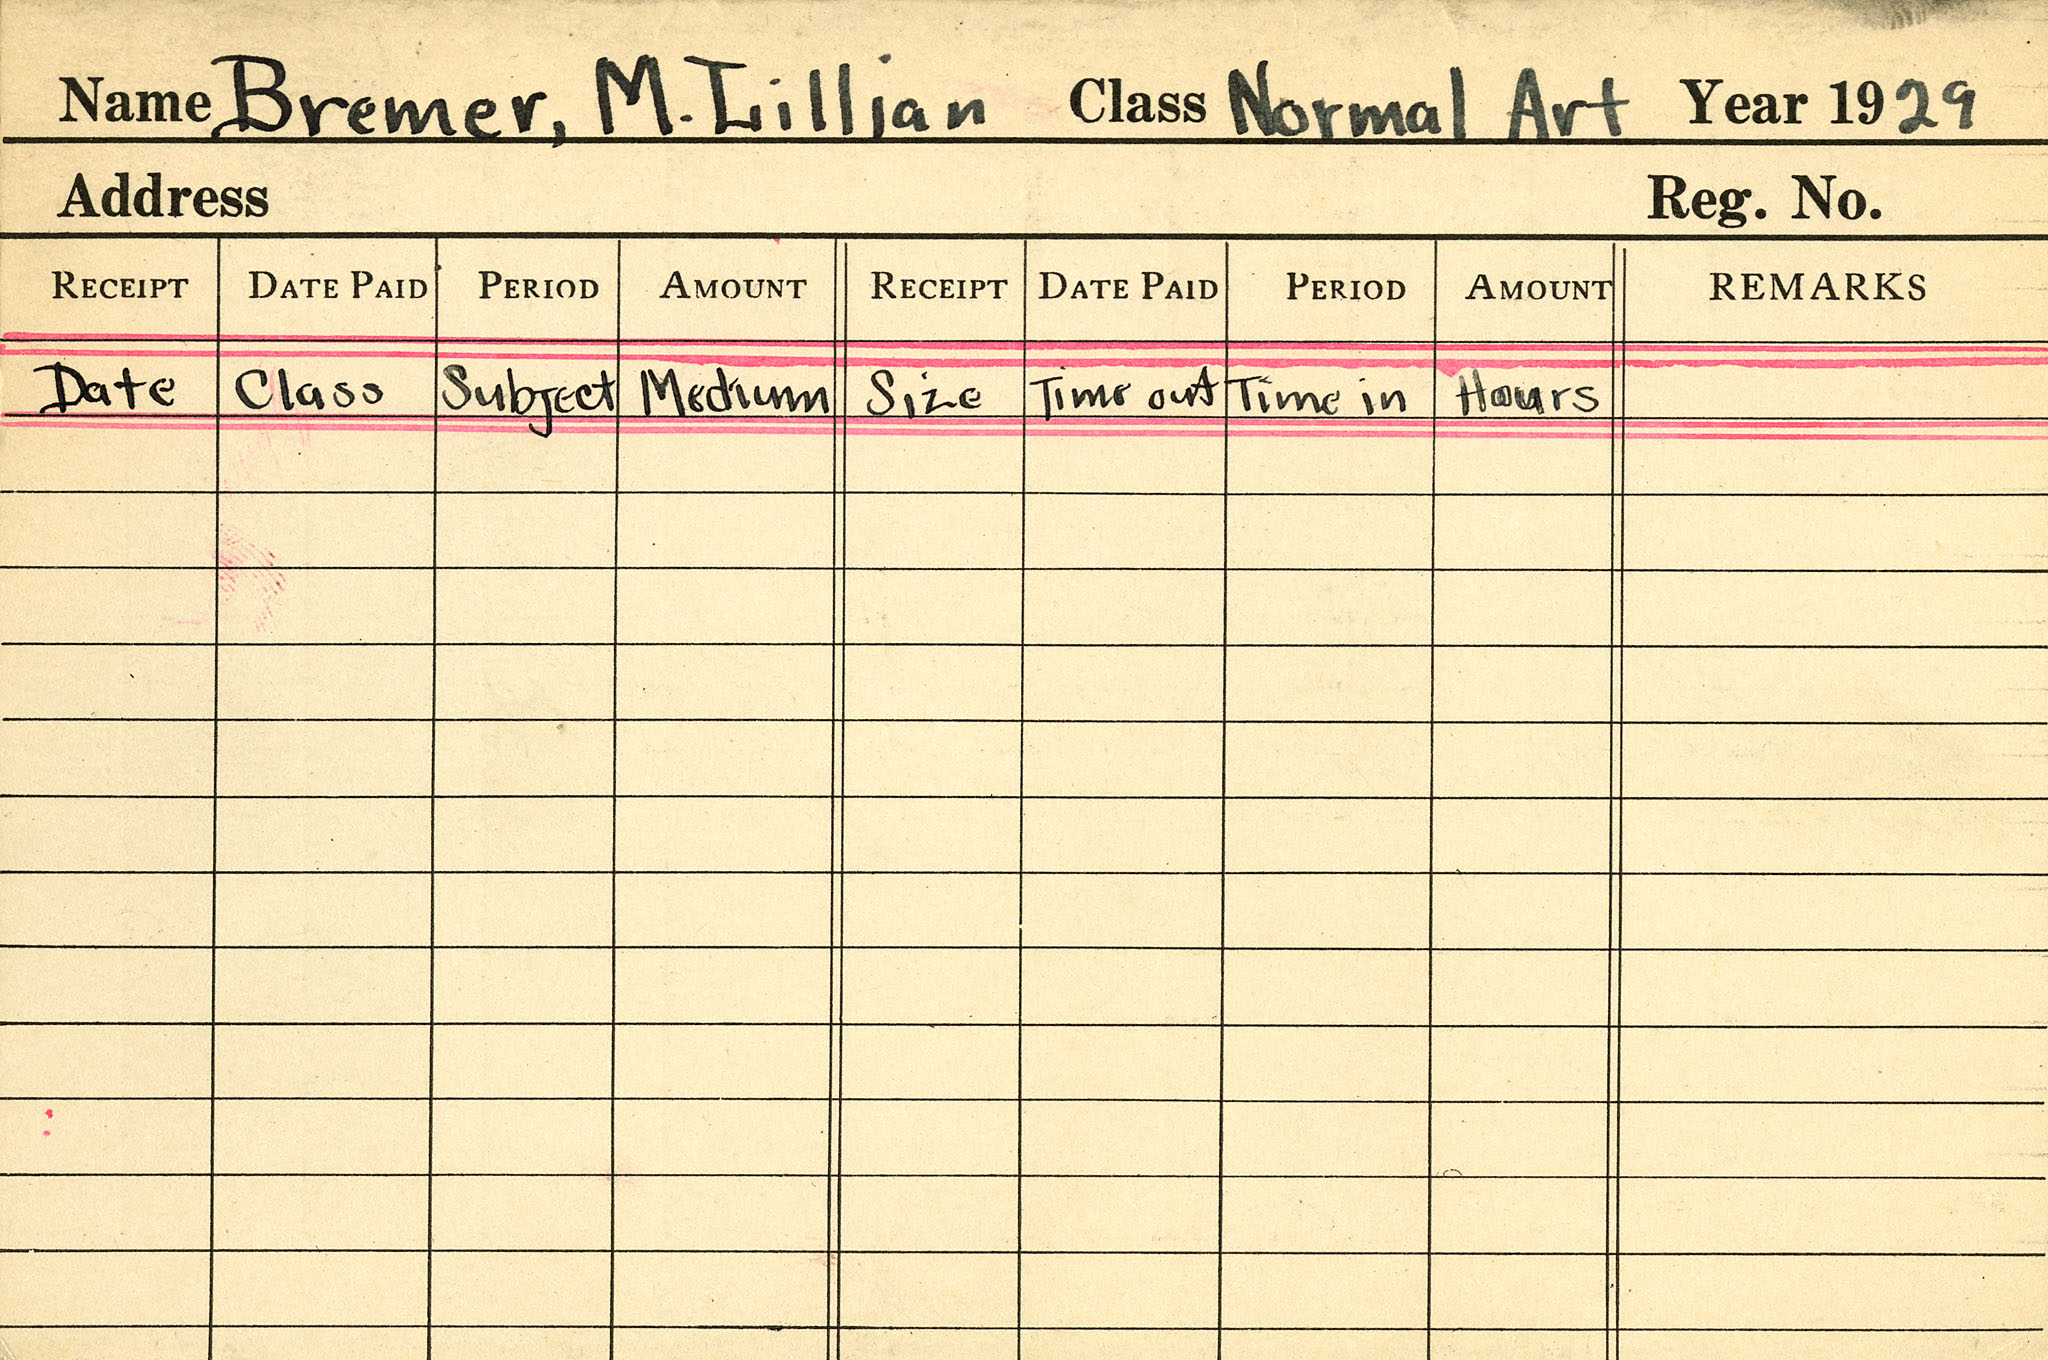 Name Bremer, M. Lillian Class Normal Art Year 1929
Address Reg. No.
RECEIPT DATE PAID PERIOD AMOUNT RECEIPT DATE PAID PERIOD AMOUNT REMARKS
Date Class Subject Medium Size Time out Time in Hours